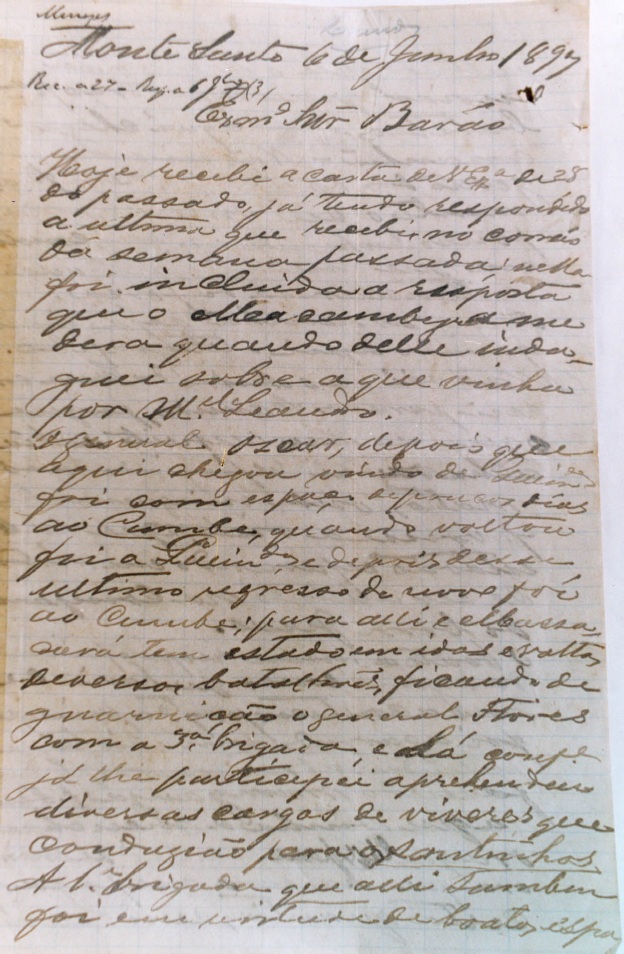 Menezes
Monte Santo 6 de Junho 1897
Rec. a 27 - Resp. a
Exmº Snr Barão
Hoje recebi a carta de Vª Exª de 28
do passado, já tendo respondido
a ultima que recebi no correio
da semana passada; nella
foi incluida a resposta
que o Macambyra me
dera quando delle inda-
guei sobre a que vinha
por M.el Leandro.
O general Oscar, depois que
aqui chegou vindo de Queimdas
foi com espaço de poucos dias
ao Cumbe, quando voltou
foi a Queimdas e depois desse
ultimo regresso de novo foi
ao Cumbe; para alli e Massa-
cará tem estado em idas e voltas
diversos batalhões, ficando de
guarnicão o general Flores
com a 3ª brigada e lá conf.e
já lhe participei aprehendeu
diversas cargas de viveres que
condusião para os santinhos.
A 1ª brigada que alli tambem
foi em virtude de boatos espa